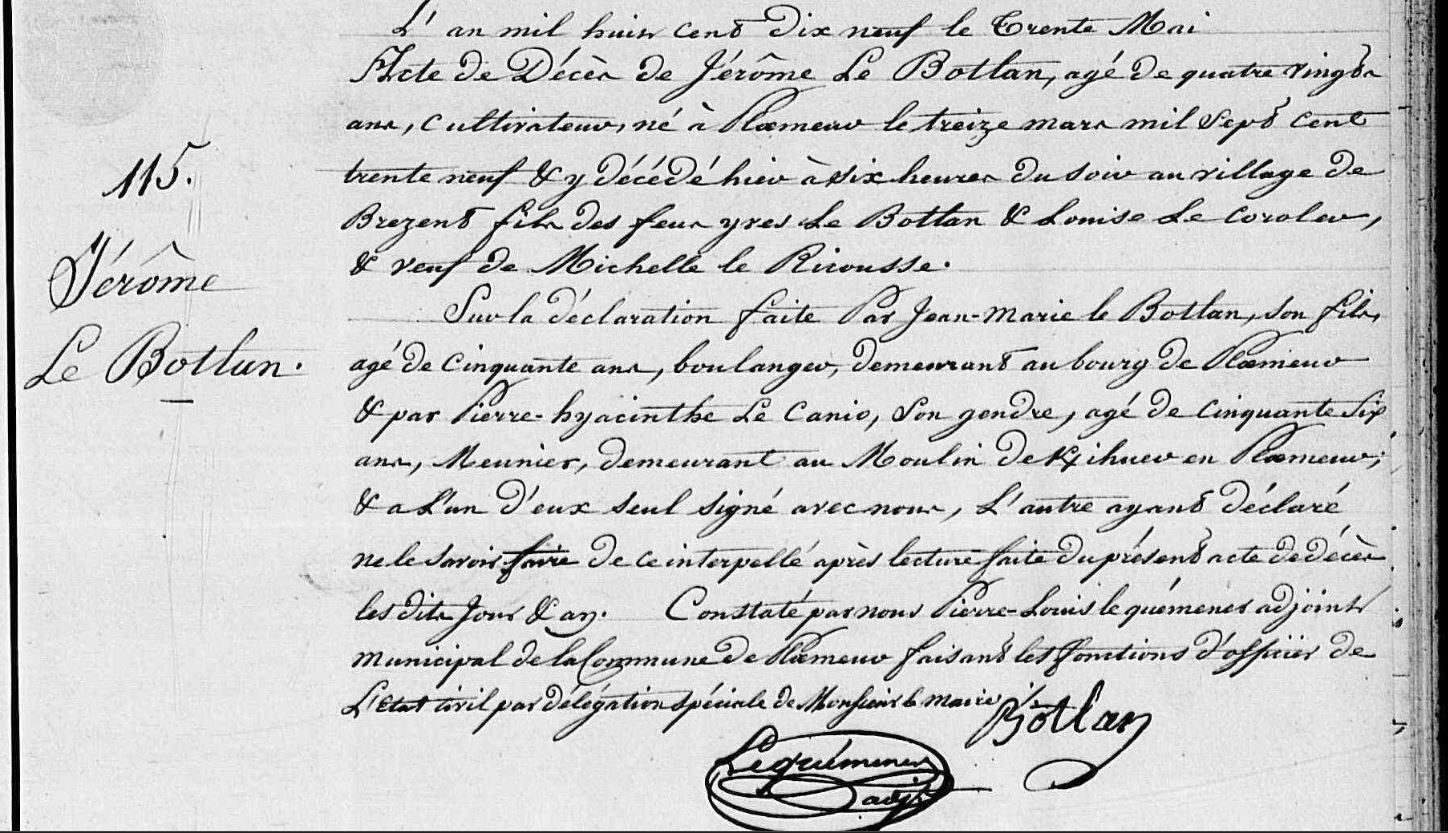 L'an mil huit cent dix neuf le Trente Mai
Acte de Décès de Jérôme Le Botlan, agé de quatre vingts
ans, Cultivateur, né à Plœmeur le treize mars mil Sept cent
115.
trente neuf & y décédé hier à six heures du soir au village de
Brezent fils des feus yves Le Botlan & Louise Le Coroler,
Jérôme
& veuf de Michelle le Ricousse.
Sur la déclaration faite Par Jean-Marie le Botlan, son fils,
Le Botlan.
agé de Cinquante ans, boulanger, demeurant au bourg de Plœmeur
& par Pierre-hyacinthe Le Canio, Son gendre, agé de Cinquante Six
ans, Meunier, demeurant au Moulin de Kihuer en Plœmeur;
& a L'un d'eux seul signé avec nous, L'autre ayant déclaré
ne le Savoir faire de ce interpellé après lecture faite du présent acte de décès
les dits Jour & an. Constaté par nous Pierre-Louis le quémener adjoint
Municipal de la Commune de Plœmeur faisant les fonctions d'officier de
L'état civil par délégation spéciale de Monsieur le maire
Botlan
Le quémener
adjt